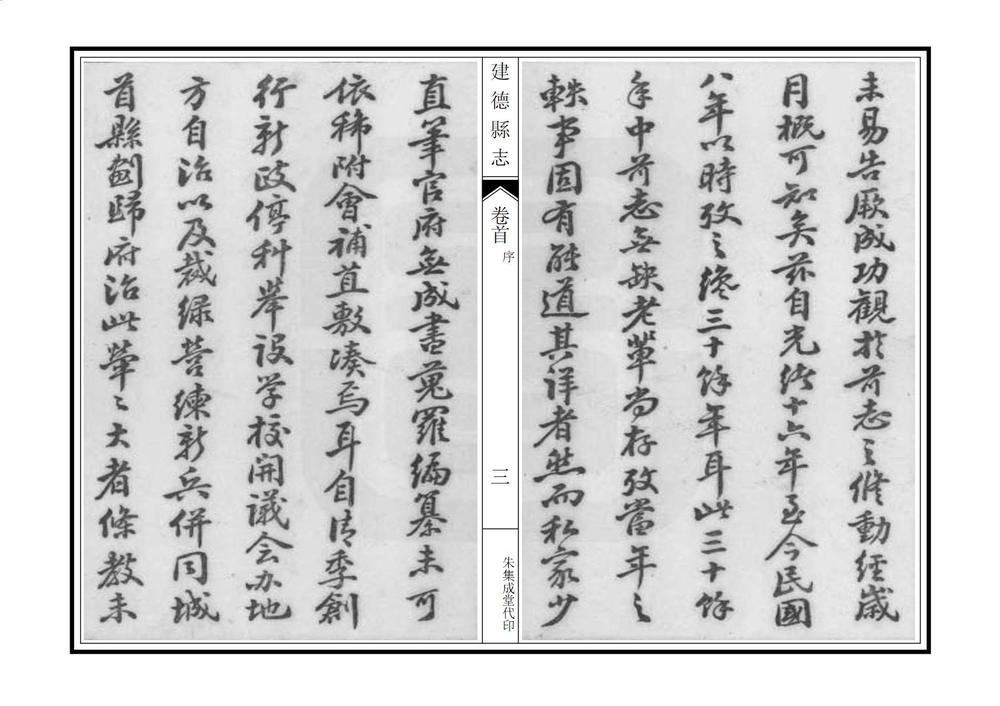 未易告厥成功觀於前志之修動經歲
月概可知矣茲自光緒十六年至今民國
八年以時攷之纔三十餘年耳此三十餘
年中前志無缺老輩尚存攷當年之
軼事固有能道其詳者然而私家少
建德縣志
卷首
序
三
朱集成堂代印
直筆官府無成書蒐羅編纂未可
依稀附會補苴敷湊焉耳自清季創
行新政停科舉設学校開議会办地
方自治以及裁綠營練新兵併同城
首縣劃歸府治此犖〻大者條教未